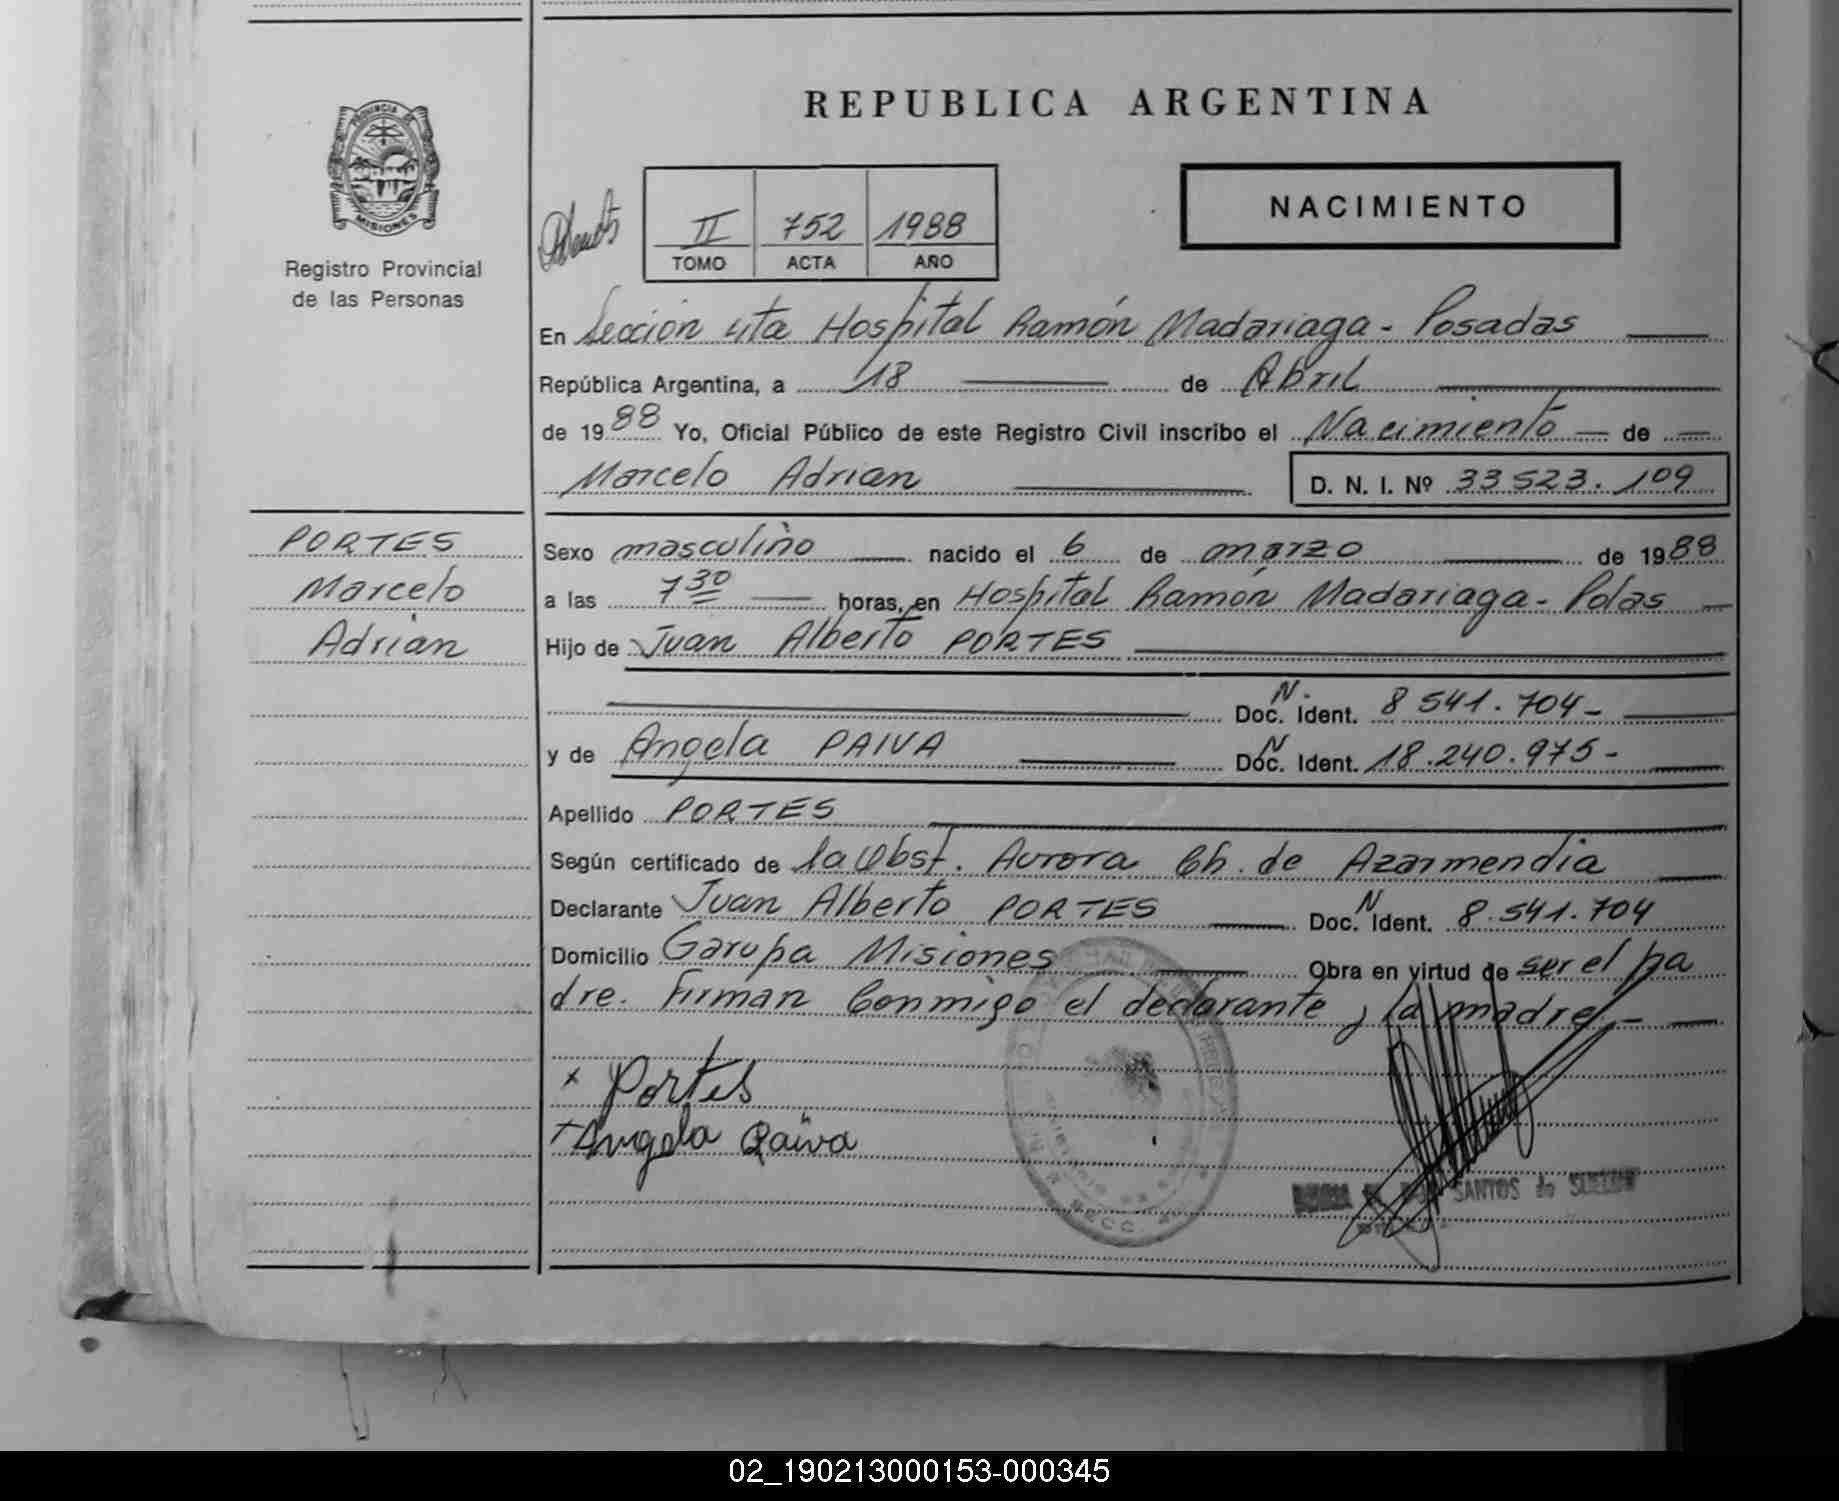 REPUBLICA ARGENTINA
PROVINCIA DE
MISIONES
Registro Provincial
de las Personas
II 752 1988
TOMO ACTA AÑO
NACIMIENTO
En Sección 4ta Hospital Ramón Madariaga - Posadas
República Argentina, a 18 de Abril
de 1988 Yo, Oficial Público de este Registro Civil inscribo el Nacimiento — de —
Marcelo Adrian D. N. I. Nº 33 523. 109
PORTES
Marcelo
Adrian
Sexo masculino nacido el 6 de marzo de 1988
a las 7 30 horas, en Hospital Ramón Madariaga - Pdas
Hijo de Juan Alberto PORTES
Doc. N. Ident. 8 541. 704 -
y de Angela PAIVA Doc. N Ident. 18.240.975 -
Apellido PORTES
Según certificado de la Obst. Aurora Ch. de Azarmendia
Declarante Juan Alberto PORTES Doc. N Ident. 8.541.704
Domicilio Garupa Misiones Obra en virtud de ser el pa
dre. Firman Conmigo el declarante y la madre -
x Portes
x Angela Paiva
SANTOS de
02_190213000153-000345